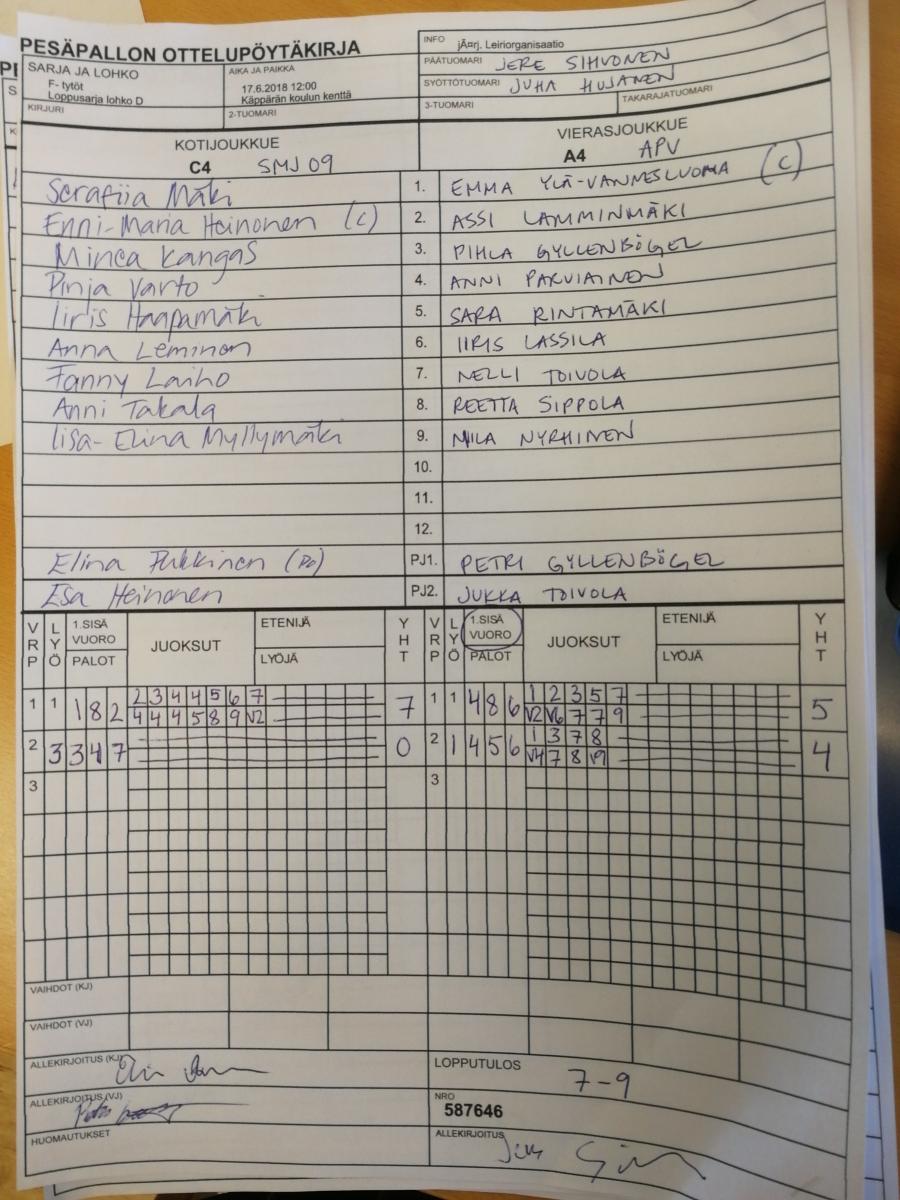 PESÄPALLON OTTELUPÖYTÄKIRJA
INFO jÃ¤rj. Leiriorganisaatio
SARJA JA LOHKO
F- tytöt
Loppusarja lohko D
AIKA JA PAIKKA
17.6.2018 12:00
Käppärän koulun kenttä
PÄÄTUOMARI JERE SIHVONEN
SYÖTTÖTUOMARI JUHA HUJANEN
KIRJURI 2-TUOMARI 3-TUOMARI TAKARAJATUOMARI
KOTIJOUKKUE VIERASJOUKKUE
C4 SMJ 09 A4 APV
Serafiia Mäki 1. EMMA YLÄ-VANNESLUOMA (C)
Enni-Maria Heinonen (C) 2. ASSI LAMMINMÄKI
Minea Kangas 3. PIHLA GYLLENBÖGEL
Pinja Varto 4. ANNI PARVIAINEN
Iiris Haapamäki 5. SARA RINTAMÄKI
Anna Leminen 6. IIRIS LASSILA
Fanny Laiho 7. NELLI TOIVOLA
Anni Takala 8. REETTA SIPPOLA
Iisa-Elina Myllymäki 9. MILA NYRHINEN
10.
11.
12.
Elina PJ1. PETRI GYLLENBÖGEL
Esa Heinonen PJ2. JUKKA TOIVOLA
VRP LYÖ 1.SISÄ VUORO PALOT JUOKSUT ETENIJÄ LYÖJÄ YHT VRP LYÖ 1.SISÄ VUORO PALOT JUOKSUT ETENIJÄ LYÖJÄ YHT
1 1 1 8 2 2 3 4 4 5 6 7 7 1 1 4 8 6 1 2 3 5 7 5
4 4 4 5 8 9 V2 V2 V6 7 7 9
2 3 3 4 7 0 2 1 4 5 6 1 3 7 8 4
V4 7 8 V9
3 3
VAIHDOT (KJ)
VAIHDOT (VJ)
ALLEKIRJOITUS (KJ) LOPPUTULOS 7-9
ALLEKIRJOITUS (VJ) NRO
587646
HUOMAUTUKSET ALLEKIRJOITUS